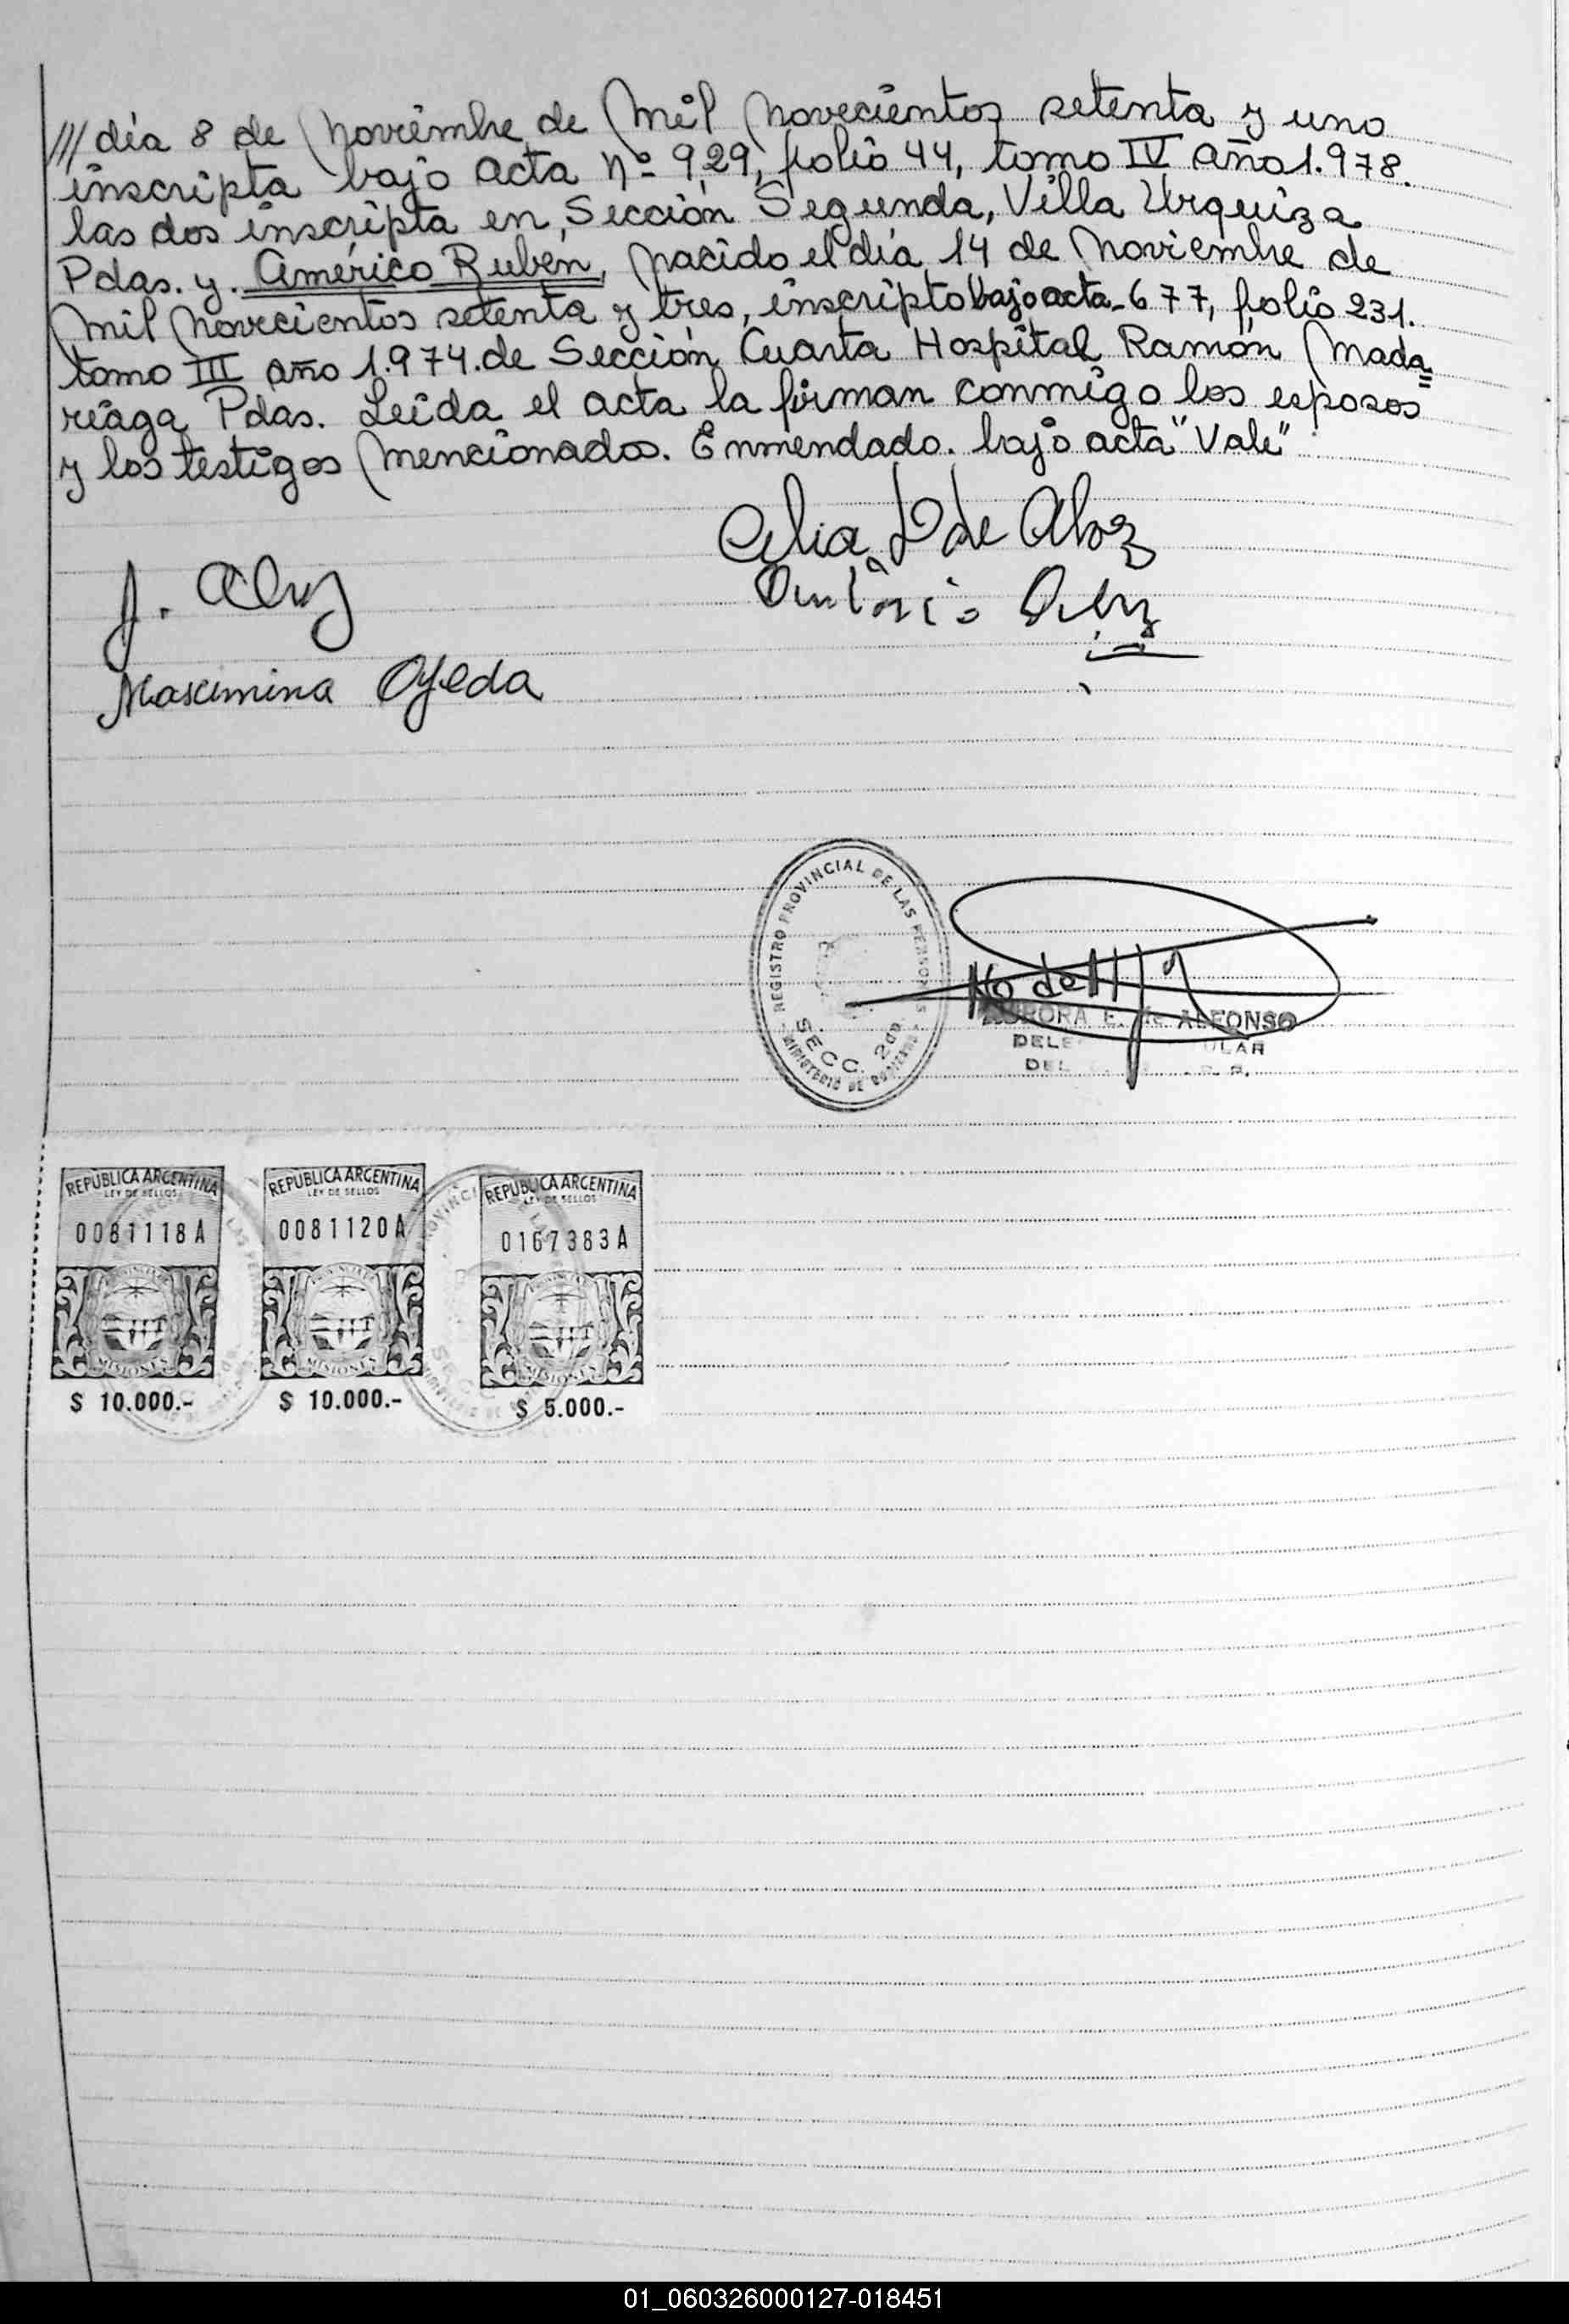 /// día 8 de noviembre de mil novecientos setenta y uno
inscripta bajo acta nº 929, folio 44, tomo IV año 1.978.
las dos inscripta en Sección Segunda, Villa Urquiza
Pdas. y. Américo Rubén, nacido el día 14 de noviembre de
mil novecientos setenta y tres, inscripto bajo acta 677, folio 231.
tomo III año 1.974. de Sección Cuarta Hospital Ramón Mada=
riaga Pdas. Leída el acta la firman conmigo los esposos
y los testigos mencionados. Enmendado. bajo acta "Vale"
Celia D de
J.
Antonio
Mascimina Ojeda
REGISTRO PROVINCIAL DE LAS PERSONAS
SECC. 2da
MINISTERIO DE GOBIERNO
AURORA E. de ALFONSO
REPUBLICA ARGENTINA REPUBLICA ARGENTINA REPUBLICA ARGENTINA
LEY DE SELLOS LEY DE SELLOS LEY DE SELLOS
0081118A 0081120A 0167383A
MISIONES MISIONES MISIONES
$ 10.000.- $ 10.000.- $ 5.000.-
01_060326000127-018451